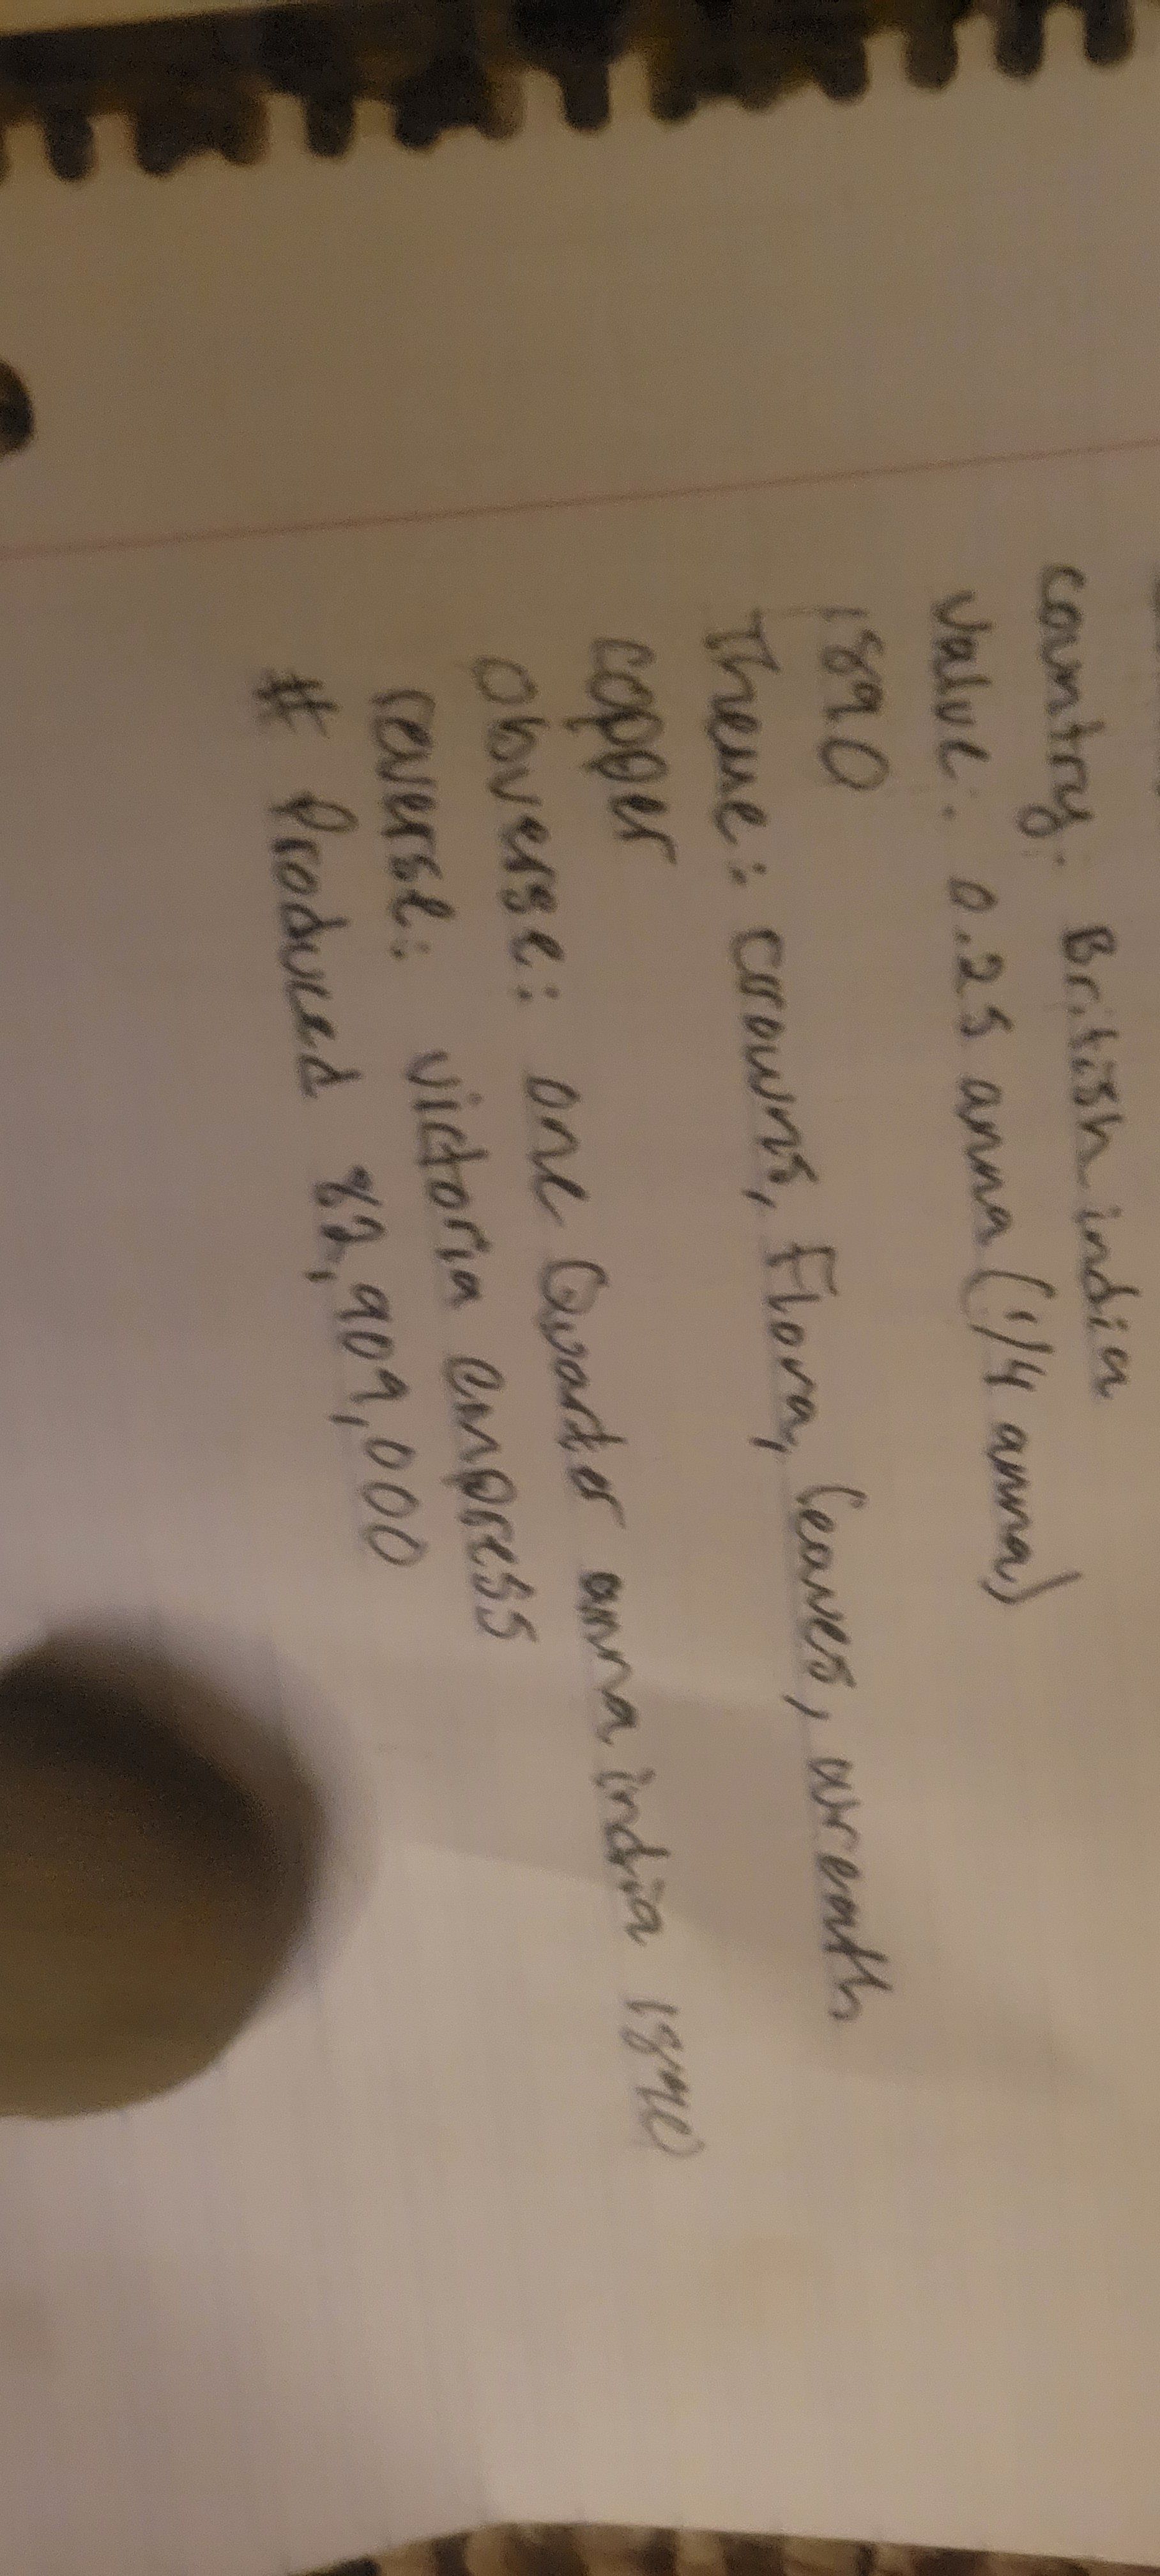 country: British india
value: 0.25 anna (1/4 anna)
1890
Theme: crowns, Flora, Leaves, wreath
copper
Obverse: one Quarter anna india 1890
reverse: victoria empress
# Produced 82,909,000